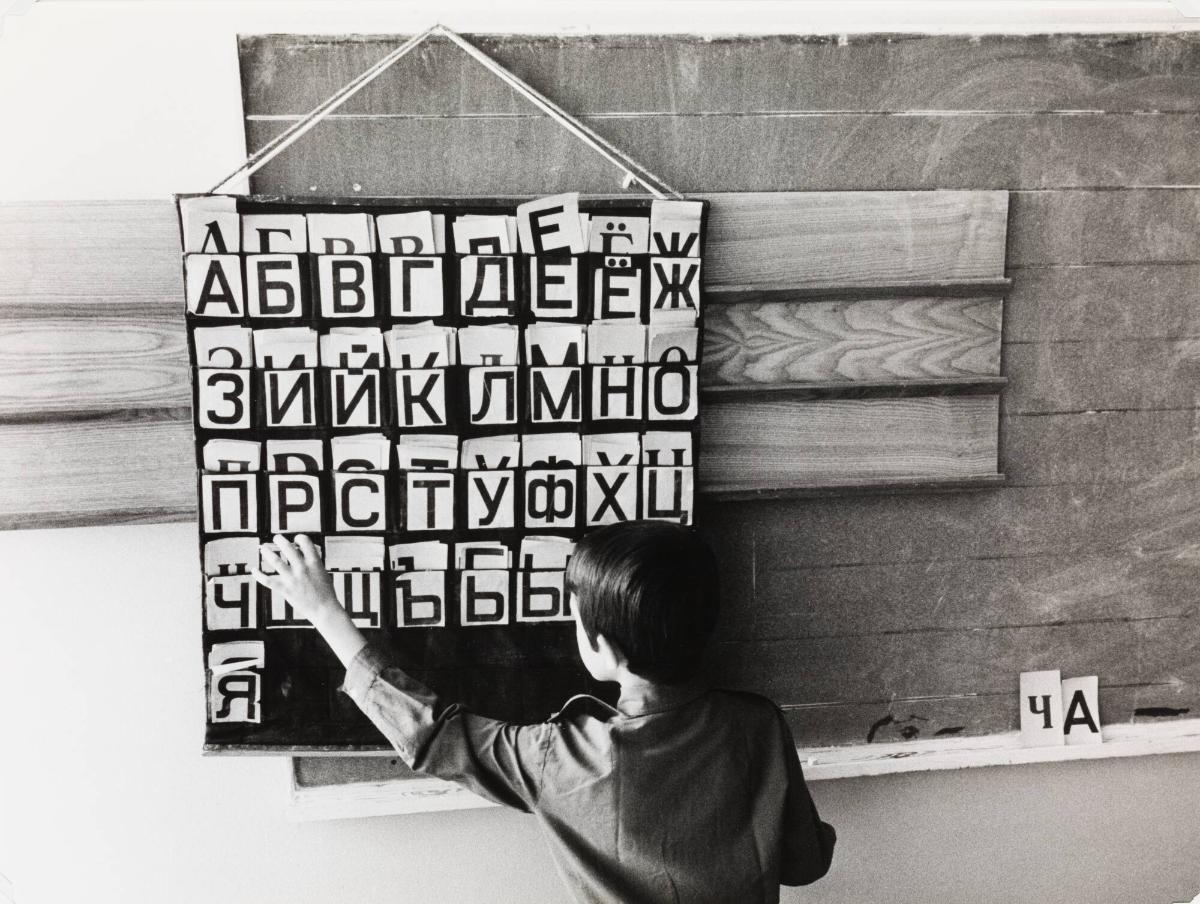 А Б В Г Д Е Ё Ж
З И Й К Л М Н О
П Р С Т У Ф Х Ц
Ч Ш Щ Ъ Ь Ы
Я
ЧА